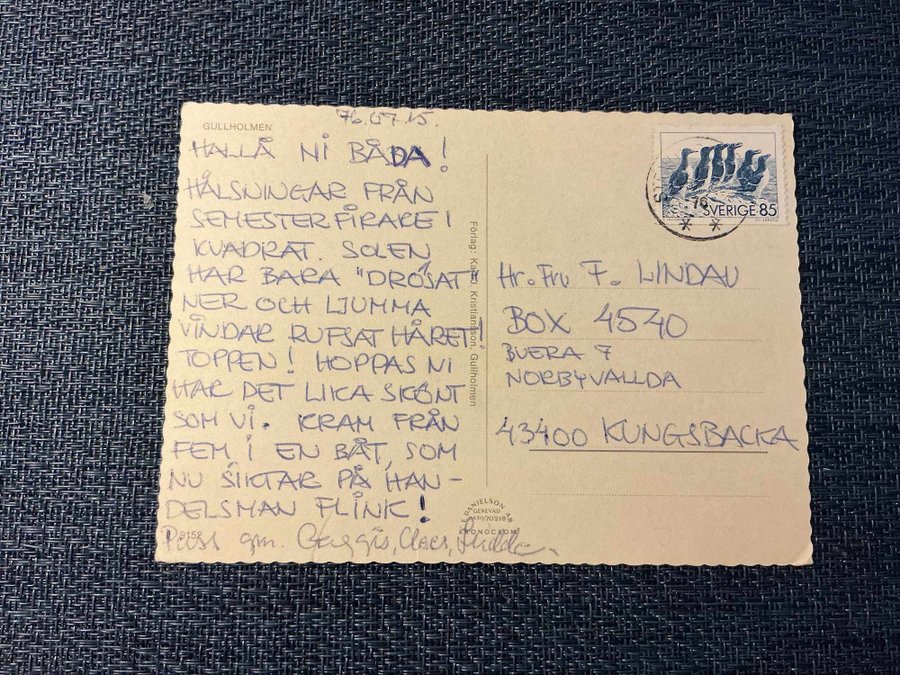 GULLHOLMEN
76.07.15.
HALLÅ NI BÅDA!
HÄLSNINGAR FRÅN
SEMESTERFIRARE I
KVADRAT. SOLEN
HAR BARA "DRÖSAT"
NER OCH LJUMMA
VINDAR RUFSAT HÅRET!
TOPPEN! HOPPAS NI
HAR DET LIKA SKÖNT
SOM VI. KRAM FRÅN
FEM I EN BÅT, SOM
NU SIKTAR PÅ HAN-
DELSMAN FLINK!
Puss gm.
Förlag: Kristiansson, Gullholmen
SVERIGE 85
Hr. Fru F. LINDAU
BOX 4540
BUERA 7
NORBYVALLDA
43400 KUNGSBACKA
DANIELSON
GENEVAD
KRONOCROM